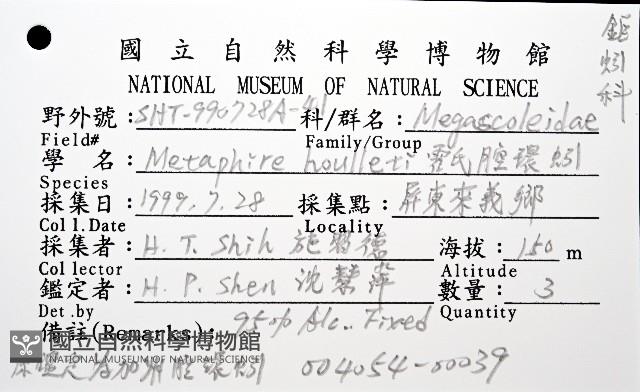 鉅蚓科
國立自然科學博物館
NATIONAL MUSEUM OF NATURAL SCIENCE
野外號:SHT-990728A-401 科/群名:Megascoleidae
Field# Family/Group
學 名:Metaphire houlleti 霍氏腔環蚓
Species
採集日:1999.7.28 採集點:屏東來義鄉
Col l.Date Locality
採集者:H.T. Shih 施習德 海拔:150 m
Col lector Altitude
鑑定者:H.P. Shen 沈慧萍 數量:3
Det .by Quantity
備註(Remarks): 95% Alc. Fixed
國立自然科學博物館
NATIONAL MUSEUM OF NATURAL SCIENCE
腔環蚓 004054-00039